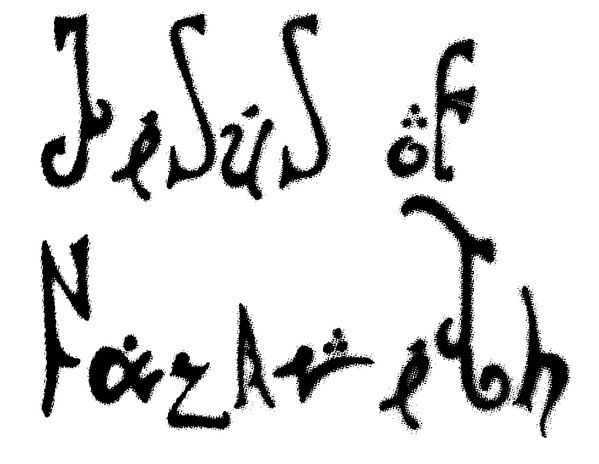 JeSuS oF
NazAreTh